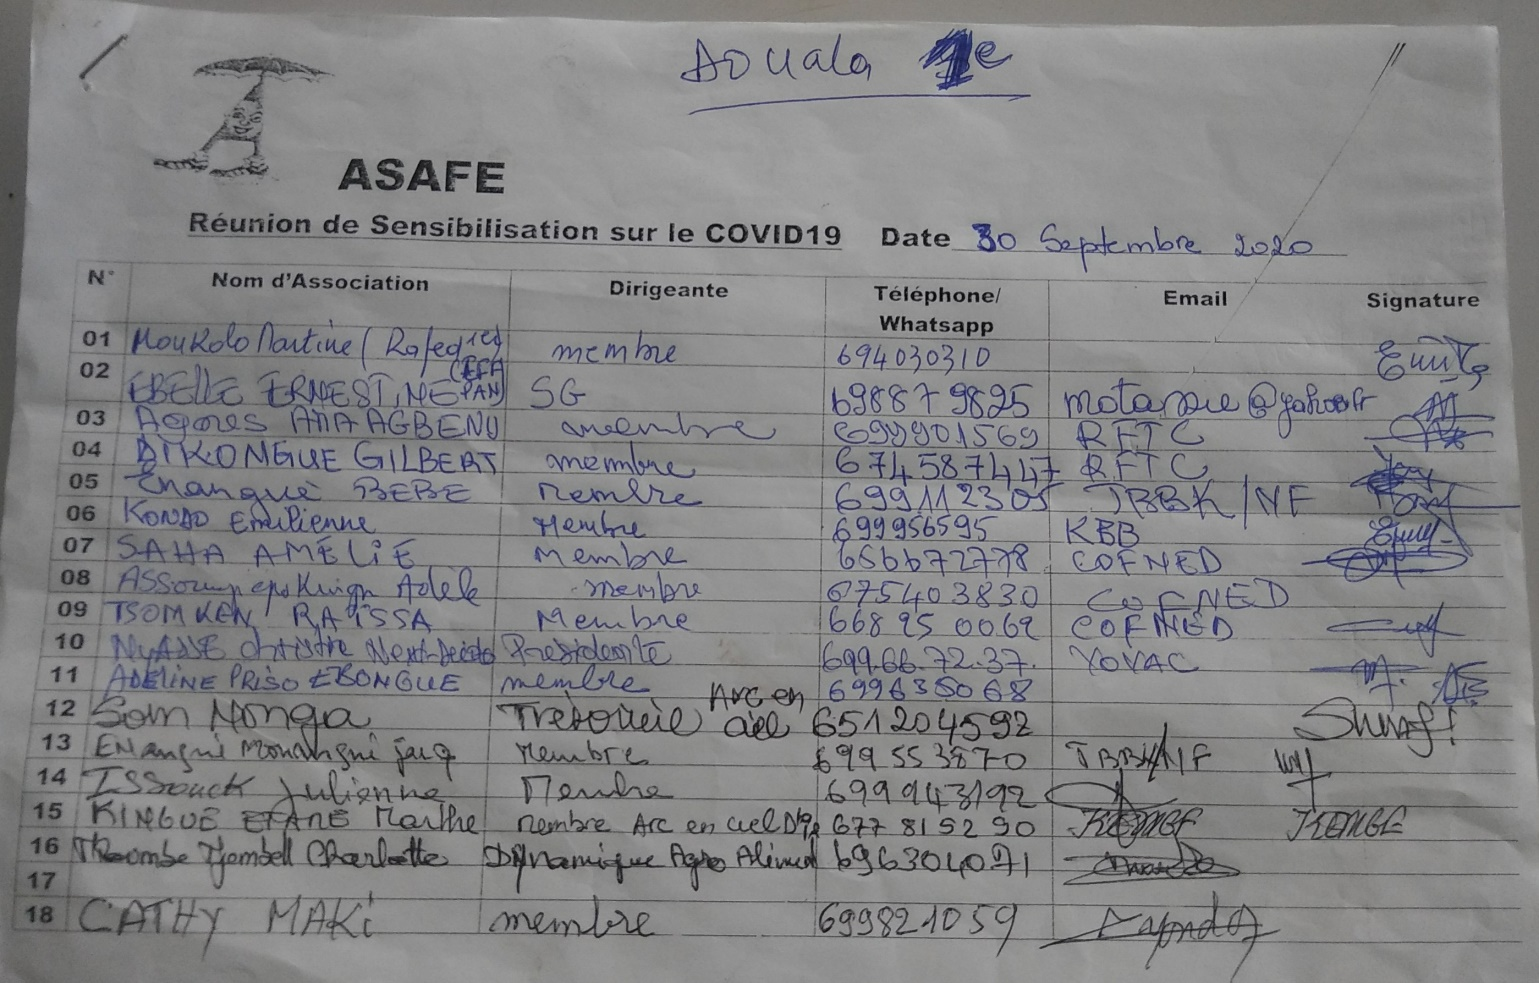 Douala 1e
ASAFE
Réunion de Sensibilisation sur le COVID19 Date 30 Septembre 2020
N° Nom d'Association Dirigeante Téléphone/ Whatsapp Email Signature
01 Moukolo Martine / membre 694030310
02 EBELLE ERNEST, SG 698879825 @yahoofr
03 AGBENU membre 699901569 RFTC
04 DIKONGUE GILBERT membre 674587447 RFTC
05 Enanguè BEBE membre 699112305 TBBK/NF
06 KONDO Emilienne Membre 699956595 KBB
07 SAHA AMÉLiE Membre 656672778 COFNED
08 Adèle membre 675403830 COFNED
09 TSOMKEN RAÏSSA Membre 668950069 COFNED
10 Présidente 699.66.72.37. VOVAC
11 ADELINE PRISO EBONGUE membre 699635068
12 Som Monga Arc en ciel 651204592
13 Membre 699553870 TBBK/NF
14 ISSouck Julienne Membre 699943192
15 KINGUE Marthe membre Arc en ciel 677815290
16 Charlotte Dynamique Agro 696304071
17
18 CATHY MAKi membre 699821059